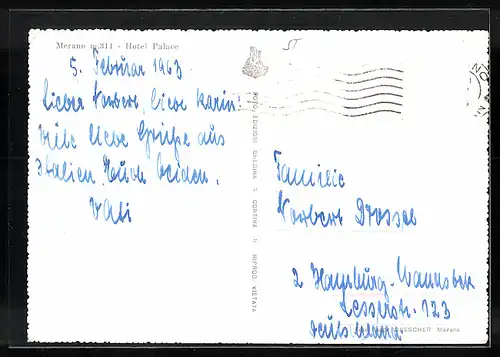 Merano m.311 - Hotel Palace
5. Februar 1963
Lieber Norbert, liebe Karin!
viele liebe Grüße aus
Italien, Euch beiden.
Vati
ST
FOTO EDIZIONI GHEDINA - CORTINA - RIPROD. VIETATA
Familie
Norbert Drossel
2 Hamburg-Wandsbek
Lesserstr. 123
Deutschland
Merano